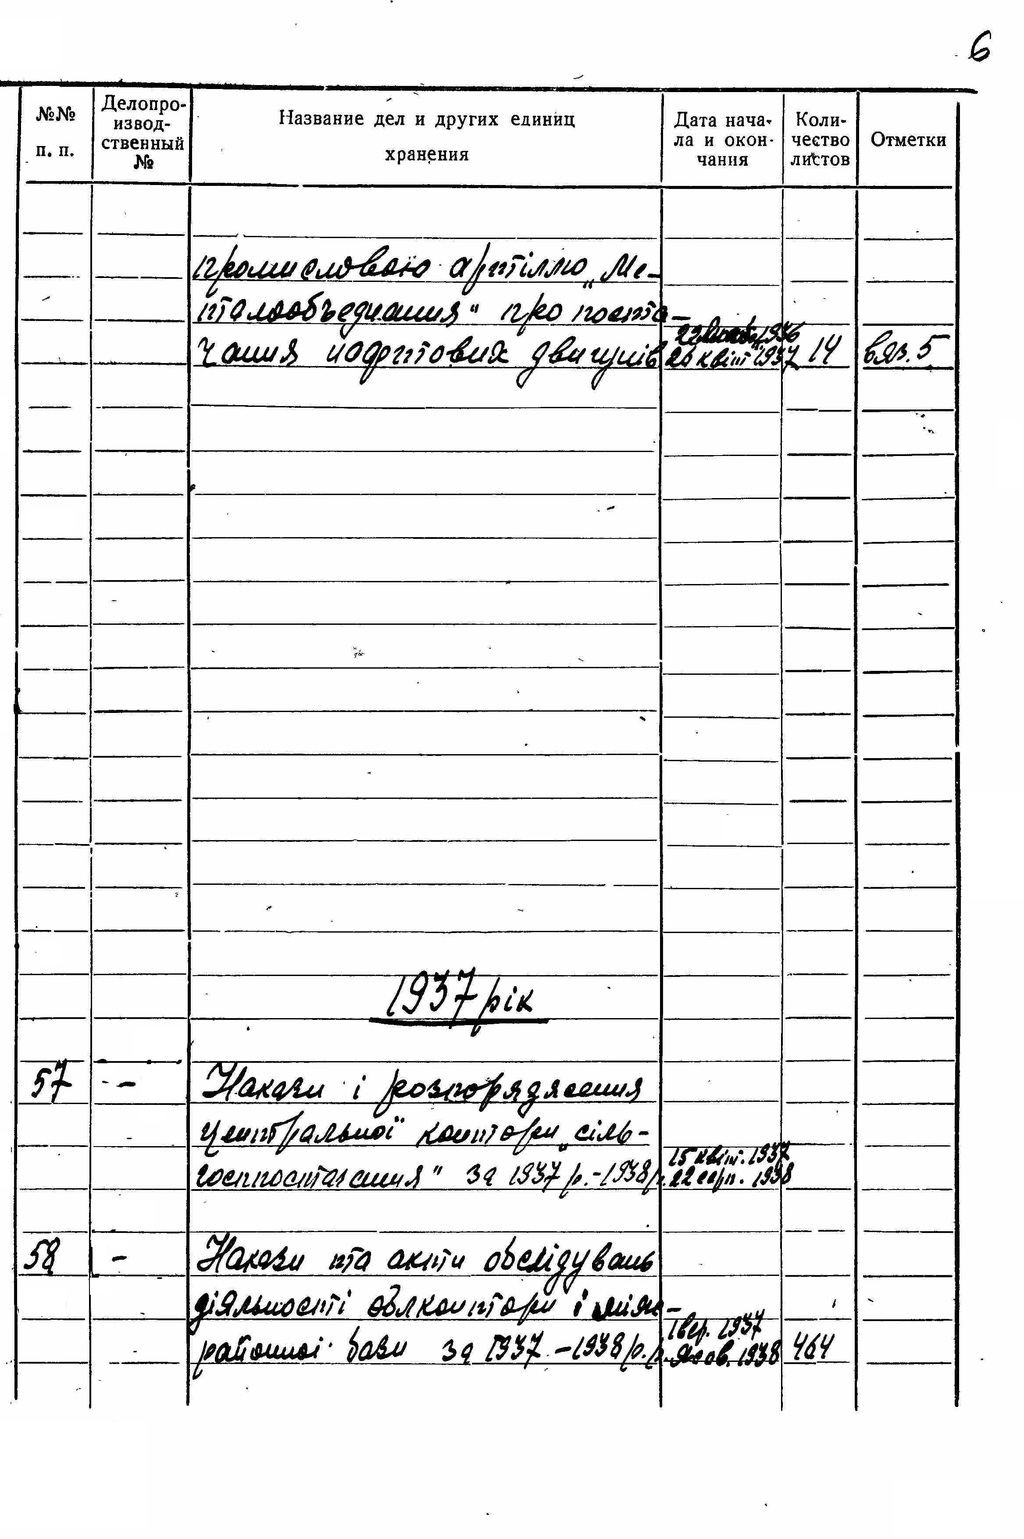 6
№№ п. п.
Делопро-
извод-
ственный
№
Название дел и других единиц
хранения
Дата нача-
ла и окон-
чания
Коли-
чество
листов
Отметки
промисловою артіллю „Ме-
талообъеднання" про поста-
чання нафтових двигунів
1936
26 квіт 1937
14
вяз. 5
1937 рік
57 - Накази і розпорядження
центральної контори „сіль-
госппостачання" за 1937 р.-1938 р.
15 квіт. 1937
22 серп. 1938
58 - Накази та акти обслідувань
діяльності облконтори і між-
районної бази за 1937-1938 р.р.
1 вер. 1937
1938
464